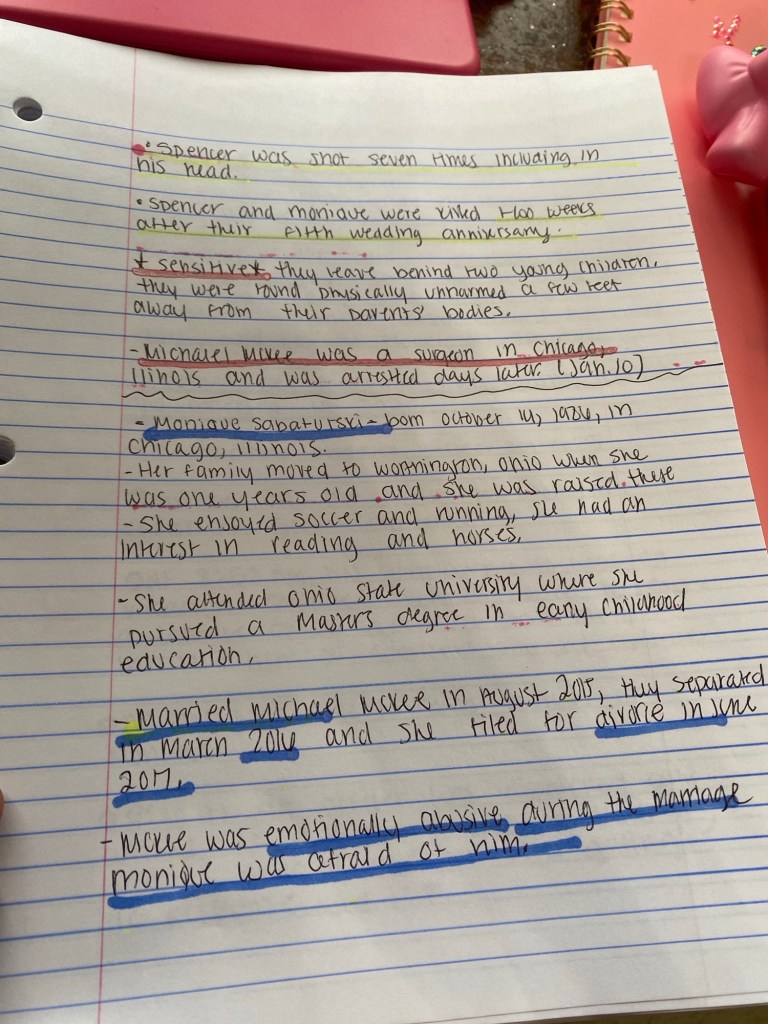 • Spencer was shot seven times including in
his head.
• Spencer and monique were killed two weeks
after their fifth wedding anniversary.
* sensitive* they leave behind two young children,
they were found physically unharmed a few feet
away from their parents' bodies.
- Michael McKee was a surgeon in Chicago,
Illinois and was arrested days later. (Jan.10)
- Monique Sabaturski - born october 14, 1986, in
chicago, illinois.
- Her family moved to worthington, ohio when she
was one years old and she was raised there
- She enjoyed soccer and running, she had an
interest in reading and horses.
- She attended ohio state university where she
pursued a Masters degree in early childhood
education.
- Married Michael McKee in August 2015, they separated
in March 2016 and she filed for divorce in June
2017.
- McKee was emotionally abusive during the marriage
monique was afraid of him.